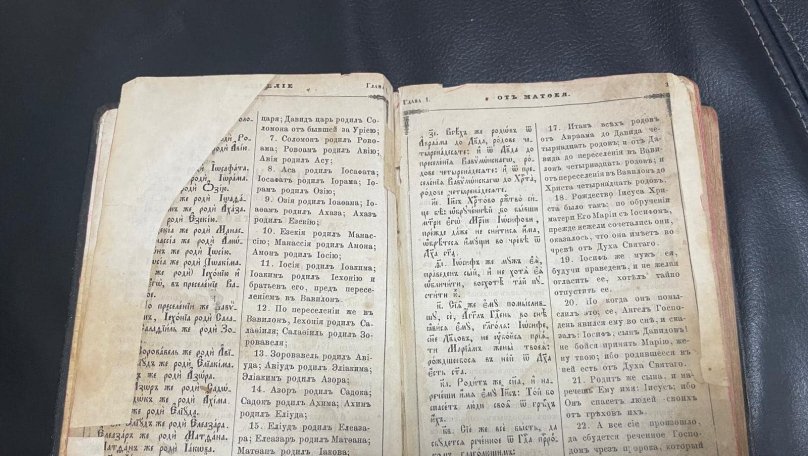 ЕЛІЕ
Глава
оло.
Ро
роди Авїю.
Іѡсафата.
роди Іѡрама.
роди Ѻзїю.
роди Іѡаѳа
роди Ахаза.
роди Езекїю.
роди Манас
же роди Амѡ
Іѡсїю.
же роди Іѡакїма.
роди Іехонїю и
въ преселенїе Ва
По преселенїи же Вавѵ
Іехонїа роди Сала
же роди Зо
Зоровавель же роди Авї
же роди Елїакїма.
же роди Азѡра.
Азѡръ же роди Садѡ
же роди Ахїма.
же роди Елїуда.
же роди Елеазара.
Елеазаръ же роди Матѳана.
же роди Іакѡва.
царя; Давидъ царь родилъ Со
ломона отъ бывшей за Уріею;
7. Соломонъ родилъ Рово
ама; Ровоамъ родилъ Авію;
Авія родилъ Асу;
8. Аса родилъ Іосафата;
Іосафатъ родилъ Іорама; Іо
рамъ родилъ Озію;
9. Озія родилъ Іоаѳама; Іо
аѳамъ родилъ Ахаза; Ахазъ
родилъ Езекію;
10. Езекія родилъ Манас
сію; Манассія родилъ Амона;
Амонъ родилъ Іосію;
11. Іосія родилъ Іоакима;
Іоакимъ родилъ Іехонію и
братьевъ его, предъ переселе
ніемъ въ Вавилонъ.
12. По переселеніи же въ
Вавилонъ, Іехонія родилъ Са
лаѳіиля; Салаѳіиль родилъ Зо
ровавеля;
13. Зоровавель родилъ Авіу
да; Авіудъ родилъ Эліакима;
Эліакимъ родилъ Азора;
14. Азоръ родилъ Садока;
Садокъ родилъ Ахима; Ахимъ
родилъ Еліуда;
15. Еліудъ родилъ Елеаза
ра; Елеазаръ родилъ Матѳана;
Матѳанъ родилъ Іакова;
Глава 1.
ОТЪ МАТѲЕЯ.
3
з҃і. Всѣхъ же родѡвъ ѿ
Авраама до Двда, родове че
тыренадесѧте: и ѿ Двда до
преселенїѧ Вавѵлѡнскагѡ, ро
дове четыренадесѧте: и ѿ пре
селенїѧ Вавѵлѡнскагѡ до Хрта,
родове четыренадесѧте.
и҃і. Іис Хртово ржтво си
це бѣ: ѡбрученнѣй бо бывши
мтри егѡ Мріи Іѡсифови,
прежде даже не снитисѧ има,
ѡбрѣтесѧ имущи во чревѣ ѿ
Дха ста.
Іѡсифъ же мужъ еѧ,
праведенъ сый, и не хотѧ еѧ
ѡбличити, восхотѣ тай пу
стити ю.
к. Сїѧ же ему помыслив
шу, се, Агглъ Гдень во снѣ
ѧвисѧ ему, глаголѧ: Іѡсифе,
сне Двдовъ, не убойсѧ прїѧ
ти Марїамъ жены твоеѧ:
рождшеебосѧ въ ней ѿ Дха
есть ста.
ка. Родитъ же сна, и на
речеши имѧ ему Іис: Той бо
спасетъ люди своѧ ѿ грѣхъ
ихъ.
кв. Сїе же все бысть, да
сбудетсѧ реченное ѿ Гда прро
комъ глаголющимъ:
17. Итакъ всѣхъ родовъ
отъ Авраама до Давида че
тырнадцать родовъ; и отъ Да
вида до переселенія въ Вави
лонъ четырнадцать родовъ; и
отъ переселенія въ Вавилонъ до
Христа четырнадцать родовъ.
18. Рождество Іисуса Хри
ста было такъ: по обрученіи
матери Его Маріи съ Іосифомъ,
прежде нежели сочетались они,
оказалось, что она имѣетъ во
чревѣ отъ Духа Святаго.
19. Іосифъ же мужъ ея,
будучи праведенъ, и не желая
огласить ее, хотѣлъ тайно
отпустить ее.
20. Но когда онъ помы
слилъ это; се, Ангелъ Госпо
день явился ему во снѣ, и ска
залъ: Іосифъ, сынъ Давидовъ!
не бойся принять Марію, же
ну твою; ибо родившееся въ
ней есть отъ Духа Святаго.
21. Родитъ же сына, и на
речешь Ему имя: Іисусъ; ибо
Онъ спасетъ людей своихъ
отъ грѣховъ ихъ.
22. А все сіе произошло,
да сбудется реченное Госпо
домъ чрезъ пророка, который